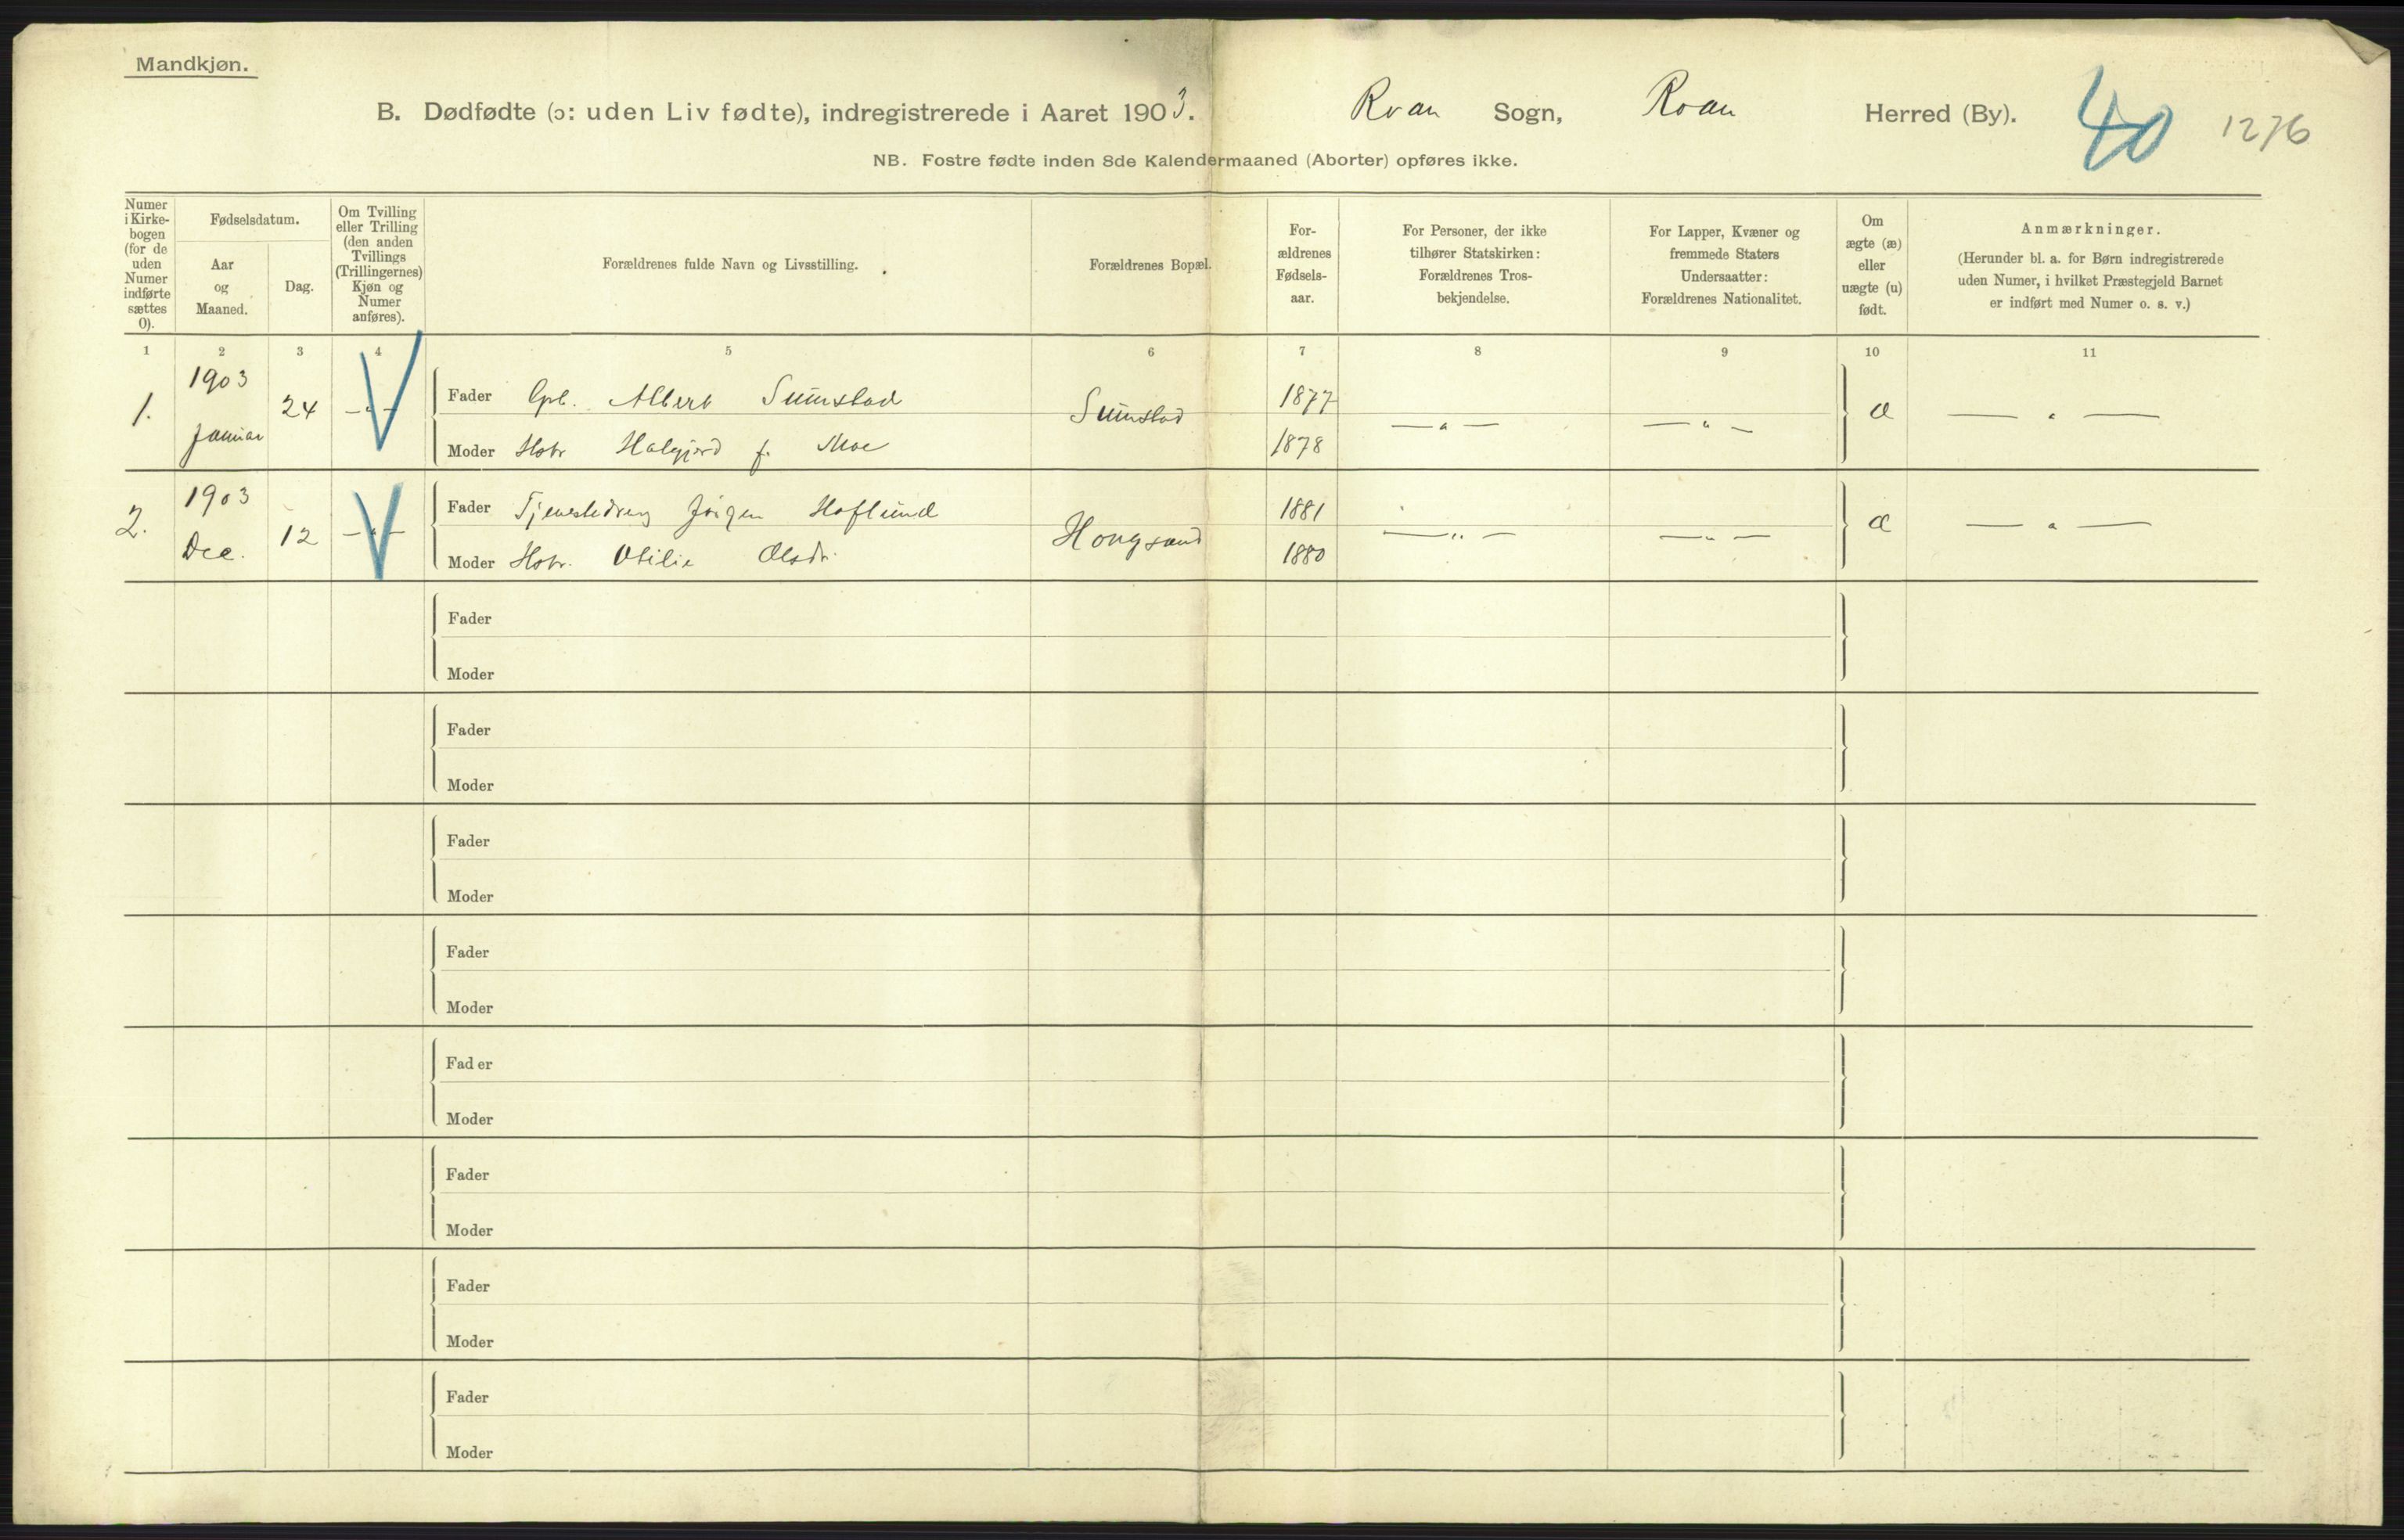 Mandkjøn.
B. Dødfødte (ɔ: uden Liv fødte), indregistrerede i Aaret 1903. Roan Sogn, Roan Herred (By). 40 1276
NB. Fostre fødte inden 8de Kalendermaaned (Aborter) opføres ikke.
Numer
i Kirke-
bogen
(for de
uden
Numer
indførte
sættes
0).
Fødselsdatum.
Aar
og
Maaned.
Dag.
Om Tvilling
eller Trilling
(den anden
Tvillings
(Trillingernes)
Kjøn og
Numer
anføres).
Forældrenes fulde Navn og Livsstilling.
Forældrenes Bopæl.
For-
ældrenes
Fødsels-
aar.
For Personer, der ikke
tilhører Statskirken:
Forældrenes Tros-
bekjendelse.
For Lapper, Kvæner og
fremmede Staters
Undersaatter:
Forældrenes Nationalitet.
Om
ægte (æ)
eller
uægte (u)
født.
Anmærkninger.
(Herunder bl. a. for Børn indregistrerede
uden Numer, i hvilket Præstegjeld Barnet
er indført med Numer o. s. v.)
1 2 3 4 5 6 7 8 9 10 11
1. 1903 Januar 24 —"—
Fader Gpb. Albert Sumstad Sumstad 1877 —"— —"— æ —"—
Moder Hstr Halgjerd f. Moe 1878
2. 1903 Dec. 12 —"—
Fader Tjenestedreng Jørgen Hoflund Hongsand 1881 —"— —"— æ —"—
Moder Hstr. Otilie Olsdr. 1880
Fader
Moder
Fader
Moder
Fader
Moder
Fader
Moder
Fader
Moder
Fader
Moder
Fader
Moder
Fader
Moder